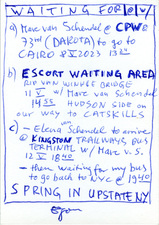 WAITING FOR @/w/
a) Marc van Schendel @ CPW@
73rd (DAKOTA) to go to
CAIRO 8 V 2023 13 20
b) ESCORT WAITING AREA
RIP VAN WINKLE BRIDGE
11 V w/ Marc van Schendel
14 55 HUDSON SIDE on
our way to CATSKILLS
c) – Elena van Schendel to arrive
@ KINGSTON TRAILWAYS BUS
TERMINAL w/ Marc v. S.
12 V 18 40
– then waiting for my bus
to go back to NYC @ 19 40
SPRING IN UPSTATE NY